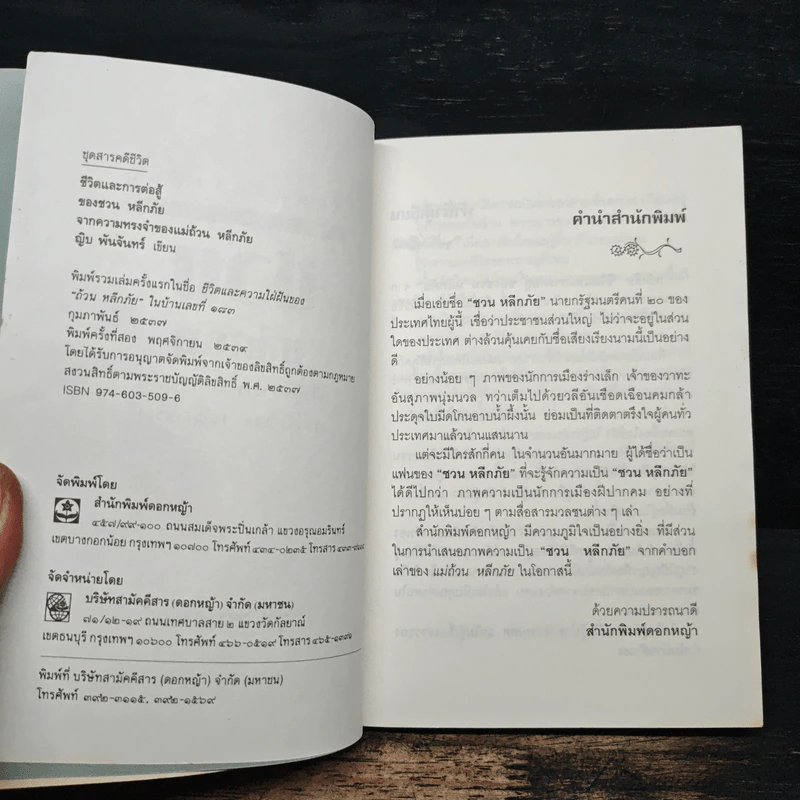 ชุดสารคดีชีวิต
ชีวิตและการต่อสู้
ของชวน หลีกภัย
จากความทรงจำของแม่ถ้วน หลีกภัย
ญิบ พันจันทร์ เขียน
พิมพ์รวมเล่มครั้งแรกในชื่อ ชีวิตและความใฝ่ฝันของ
"ถ้วน หลีกภัย" ในบ้านเลขที่ ๑๘๓
กุมภาพันธ์ ๒๕๓๗
พิมพ์ครั้งที่สอง พฤศจิกายน ๒๕๓๙
โดยได้รับการอนุญาตจัดพิมพ์จากเจ้าของลิขสิทธิ์ถูกต้องตามกฎหมาย
สงวนสิทธิ์ตามพระราชบัญญัติลิขสิทธิ์ พ.ศ. ๒๕๓๗
ISBN 974-603-509-6
จัดพิมพ์โดย
สำนักพิมพ์ดอกหญ้า
๔๕๗/๙๙-๑๐๐ ถนนสมเด็จพระปิ่นเกล้า แขวงอรุณอมรินทร์
เขตบางกอกน้อย กรุงเทพฯ ๑๐๗๐๐ โทรศัพท์ ๔๓๔-๐๒๓๕ โทรสาร
จัดจำหน่ายโดย
บริษัทสามัคคีสาร (ดอกหญ้า) จำกัด (มหาชน)
๗๑/๑๒-๑๙ ถนนเทศบาลสาย ๒ แขวงวัดกัลยาณ์
เขตธนบุรี กรุงเทพฯ ๑๐๖๐๐ โทรศัพท์ ๔๖๖-๐๕๑๙ โทรสาร
พิมพ์ที่ บริษัทสามัคคีสาร (ดอกหญ้า) จำกัด (มหาชน)
โทรศัพท์ ๓๙๒-๓๑๑๕, ๓๙๒-๑๕๖๙
คำนำสำนักพิมพ์
เมื่อเอ่ยชื่อ "ชวน หลีกภัย" นายกรัฐมนตรีคนที่ ๒๐ ของ
ประเทศไทยผู้นี้ เชื่อว่าประชาชนส่วนใหญ่ ไม่ว่าจะอยู่ในส่วน
ใดของประเทศ ต่างล้วนคุ้นเคยกับชื่อเสียงเรียงนามนี้เป็นอย่าง
ดี
อย่างน้อย ๆ ภาพของนักการเมืองร่างเล็ก เจ้าของวาทะ
อันสุภาพนุ่มนวล ทว่าเต็มไปด้วยวลีอันเชือดเฉือนคมกล้า
ประดุจใบมีดโกนอาบน้ำผึ้งนั้น ย่อมเป็นที่ติดตาตรึงใจผู้คนทั่ว
ประเทศมาแล้วนานแสนนาน
แต่จะมีใครสักกี่คน ในจำนวนอันมากมาย ผู้ได้ชื่อว่าเป็น
แฟนของ "ชวน หลีกภัย" ที่จะรู้จักความเป็น "ชวน หลีกภัย"
ได้ดีไปกว่า ภาพความเป็นนักการเมืองฝีปากคม อย่างที่
ปรากฏให้เห็นบ่อย ๆ ตามสื่อสารมวลชนต่าง ๆ เล่า
สำนักพิมพ์ดอกหญ้า มีความภูมิใจเป็นอย่างยิ่ง ที่มีส่วน
ในการนำเสนอภาพความเป็น "ชวน หลีกภัย" จากคำบอก
เล่าของ แม่ถ้วน หลีกภัย ในโอกาสนี้
ด้วยความปรารถนาดี
สำนักพิมพ์ดอกหญ้า